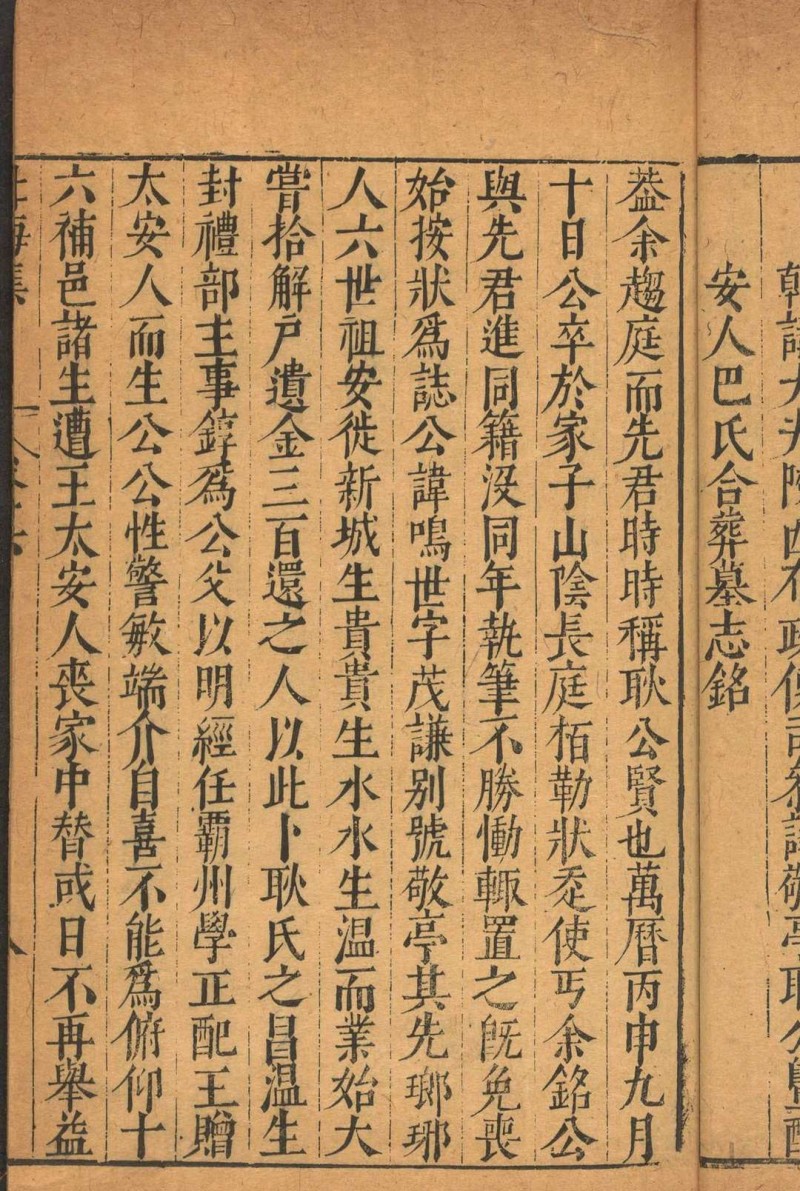 安人巴氏合葬墓志銘
葢余趨庭而先君時時稱耿公賢也萬曆丙申九月
十日公卒於家子山陰長庭栢勒狀走使丐余銘公
與先君進同籍沒同年執筆不勝慟輙置之既免喪
始按狀爲誌公諱鳴世字茂謙别號敬亭其先瑯琊
人六世祖安徙新城生貴貴生水水生温而業始大
嘗拾解戶遺金三百還之人以此卜耿氏之昌温生
封禮部主事錞爲公父以明經任霸州學正配王贈
太安人而生公公性警敏端介自喜不能爲俯仰十
六補邑諸生遭王太安人喪家中替或日不再舉益